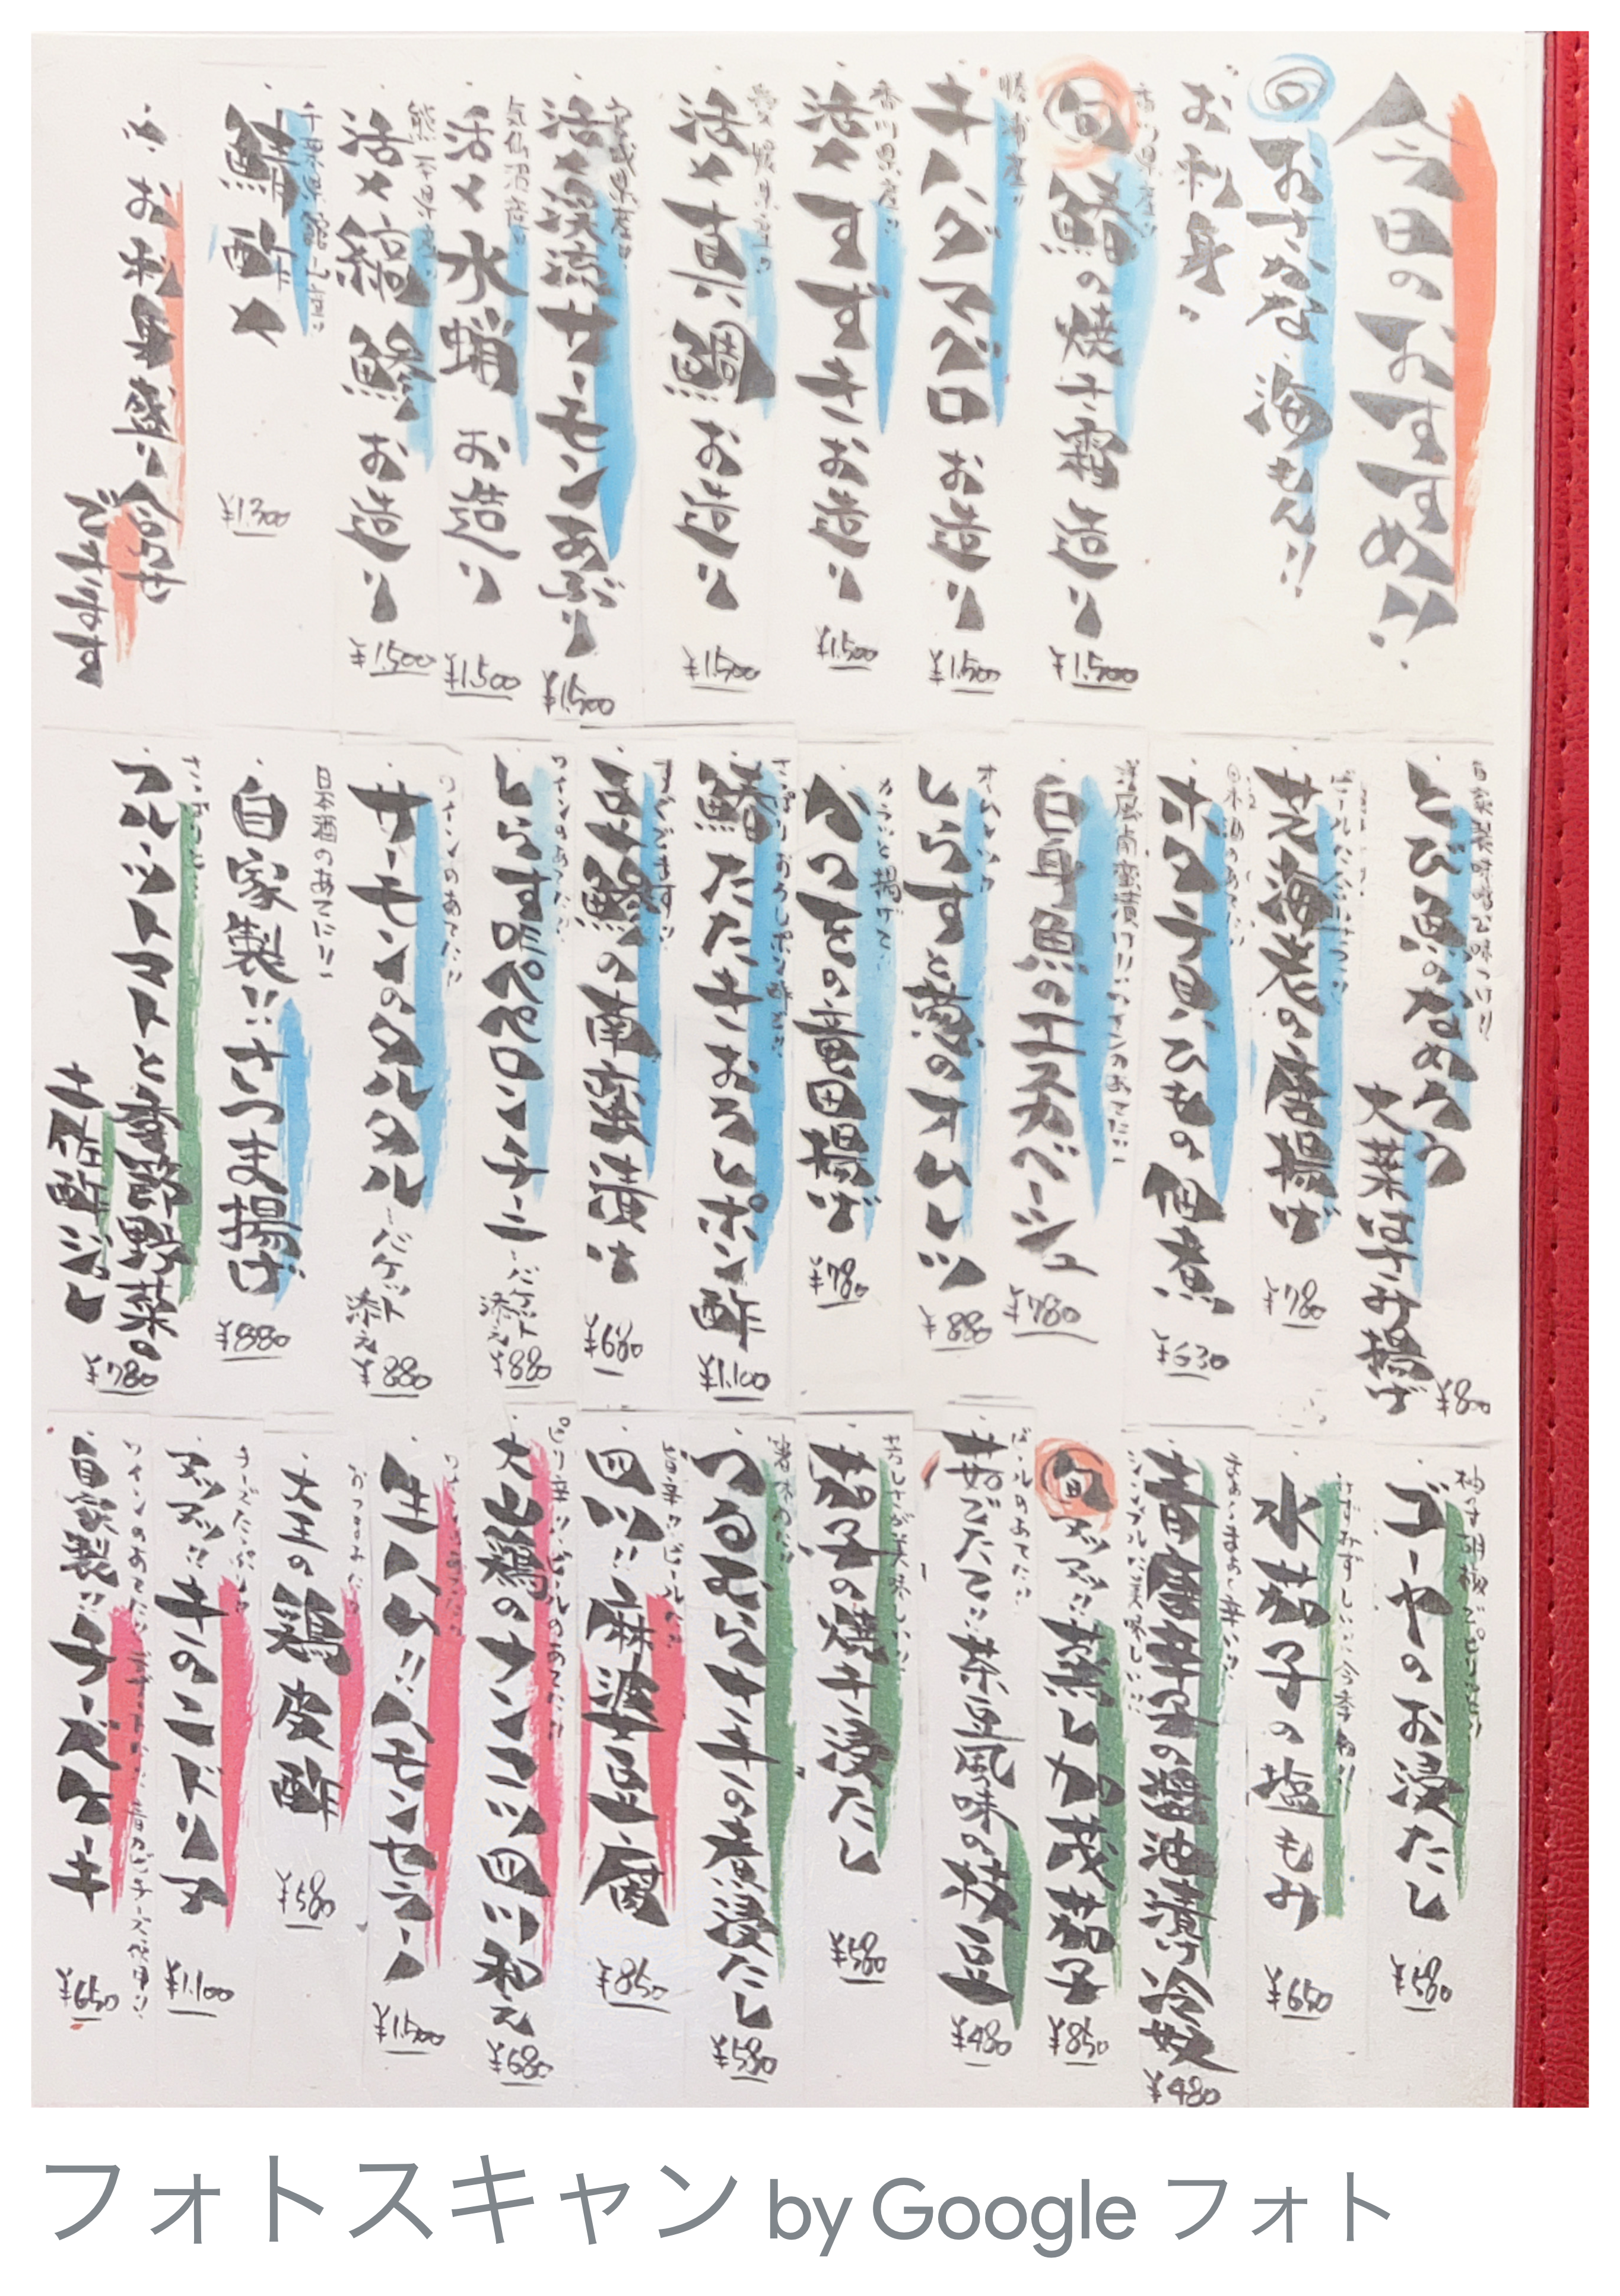 今日のおすすめ!!
旬おさかな海もん!!
お刺身
香川県産
旬鰆の焼き霜造り
¥1,500
勝浦産
キハダマグロお造り
¥1,500
香川県産
活〆すずきお造り
¥1,500
愛媛県産
活〆真鯛お造り
¥1,500
宮城県産
活〆渓流サーモンあぶり
¥1,500
気仙沼産
活〆水蛸お造り
¥1,500
熊本県産
活〆縞鯵お造り
¥1,500
千葉県館山産
鯖酢〆
¥1,300
お刺身盛り合せ
できます
自家製味噌で味つけ!!
とび魚のなめろう
大葉はさみ揚げ
¥880
芝海老の唐揚げ
¥780
日本酒のあてに!!
ホタテ貝ひもの佃煮
¥630
洋風南蛮漬け!!ワインのあてに!!
白身魚のエスカベーシュ
¥780
しらすと葱のオムレツ
¥880
カラッと揚げて!!
かつをの竜田揚げ
¥780
さっぱりおろしポン酢で!!
鰆たたきおろしポン酢
¥1,100
まめ鯵の南蛮漬け
¥680
ワインのあてに!!
しらすペペロンチーニ
バケット添え
¥880
ワインのあてに!!
サーモンのタルタル
バケット添え
¥880
日本酒のあてに!!
自家製!!さつま揚げ
¥880
フルーツトマトと香味野菜の
土佐酢ジュレ
¥780
柚子胡椒でピリッと!!
ゴーヤのお浸たし
¥580
みずみずしい!!今季初!!
水茄子の塩もみ
¥650
シンプルに美味しい!!
青唐辛子の醤油漬け冷奴
¥480
旬アツアツ!!蒸し加茂茄子
¥850
ビールのあてに!!
茹でたて!!茶豆風味の枝豆
¥480
茄子の焼き浸たし
¥580
つるむらさきの煮浸たし
¥580
旨辛!!ビールに!!
四川!!麻婆豆腐
¥850
ピリ辛!!ビールのあてに!!
大山鶏のナンコツ四川和え
¥680
生ハム!!ハモンセラーノ
¥1,500
おつまみに!!
丈王の鶏皮酢
¥580
チーズたっぷり!!
アツアツ!!牛のニドリア
¥1,100
自家製!!チーズケーキ
¥650
フォトスキャン by Google フォト